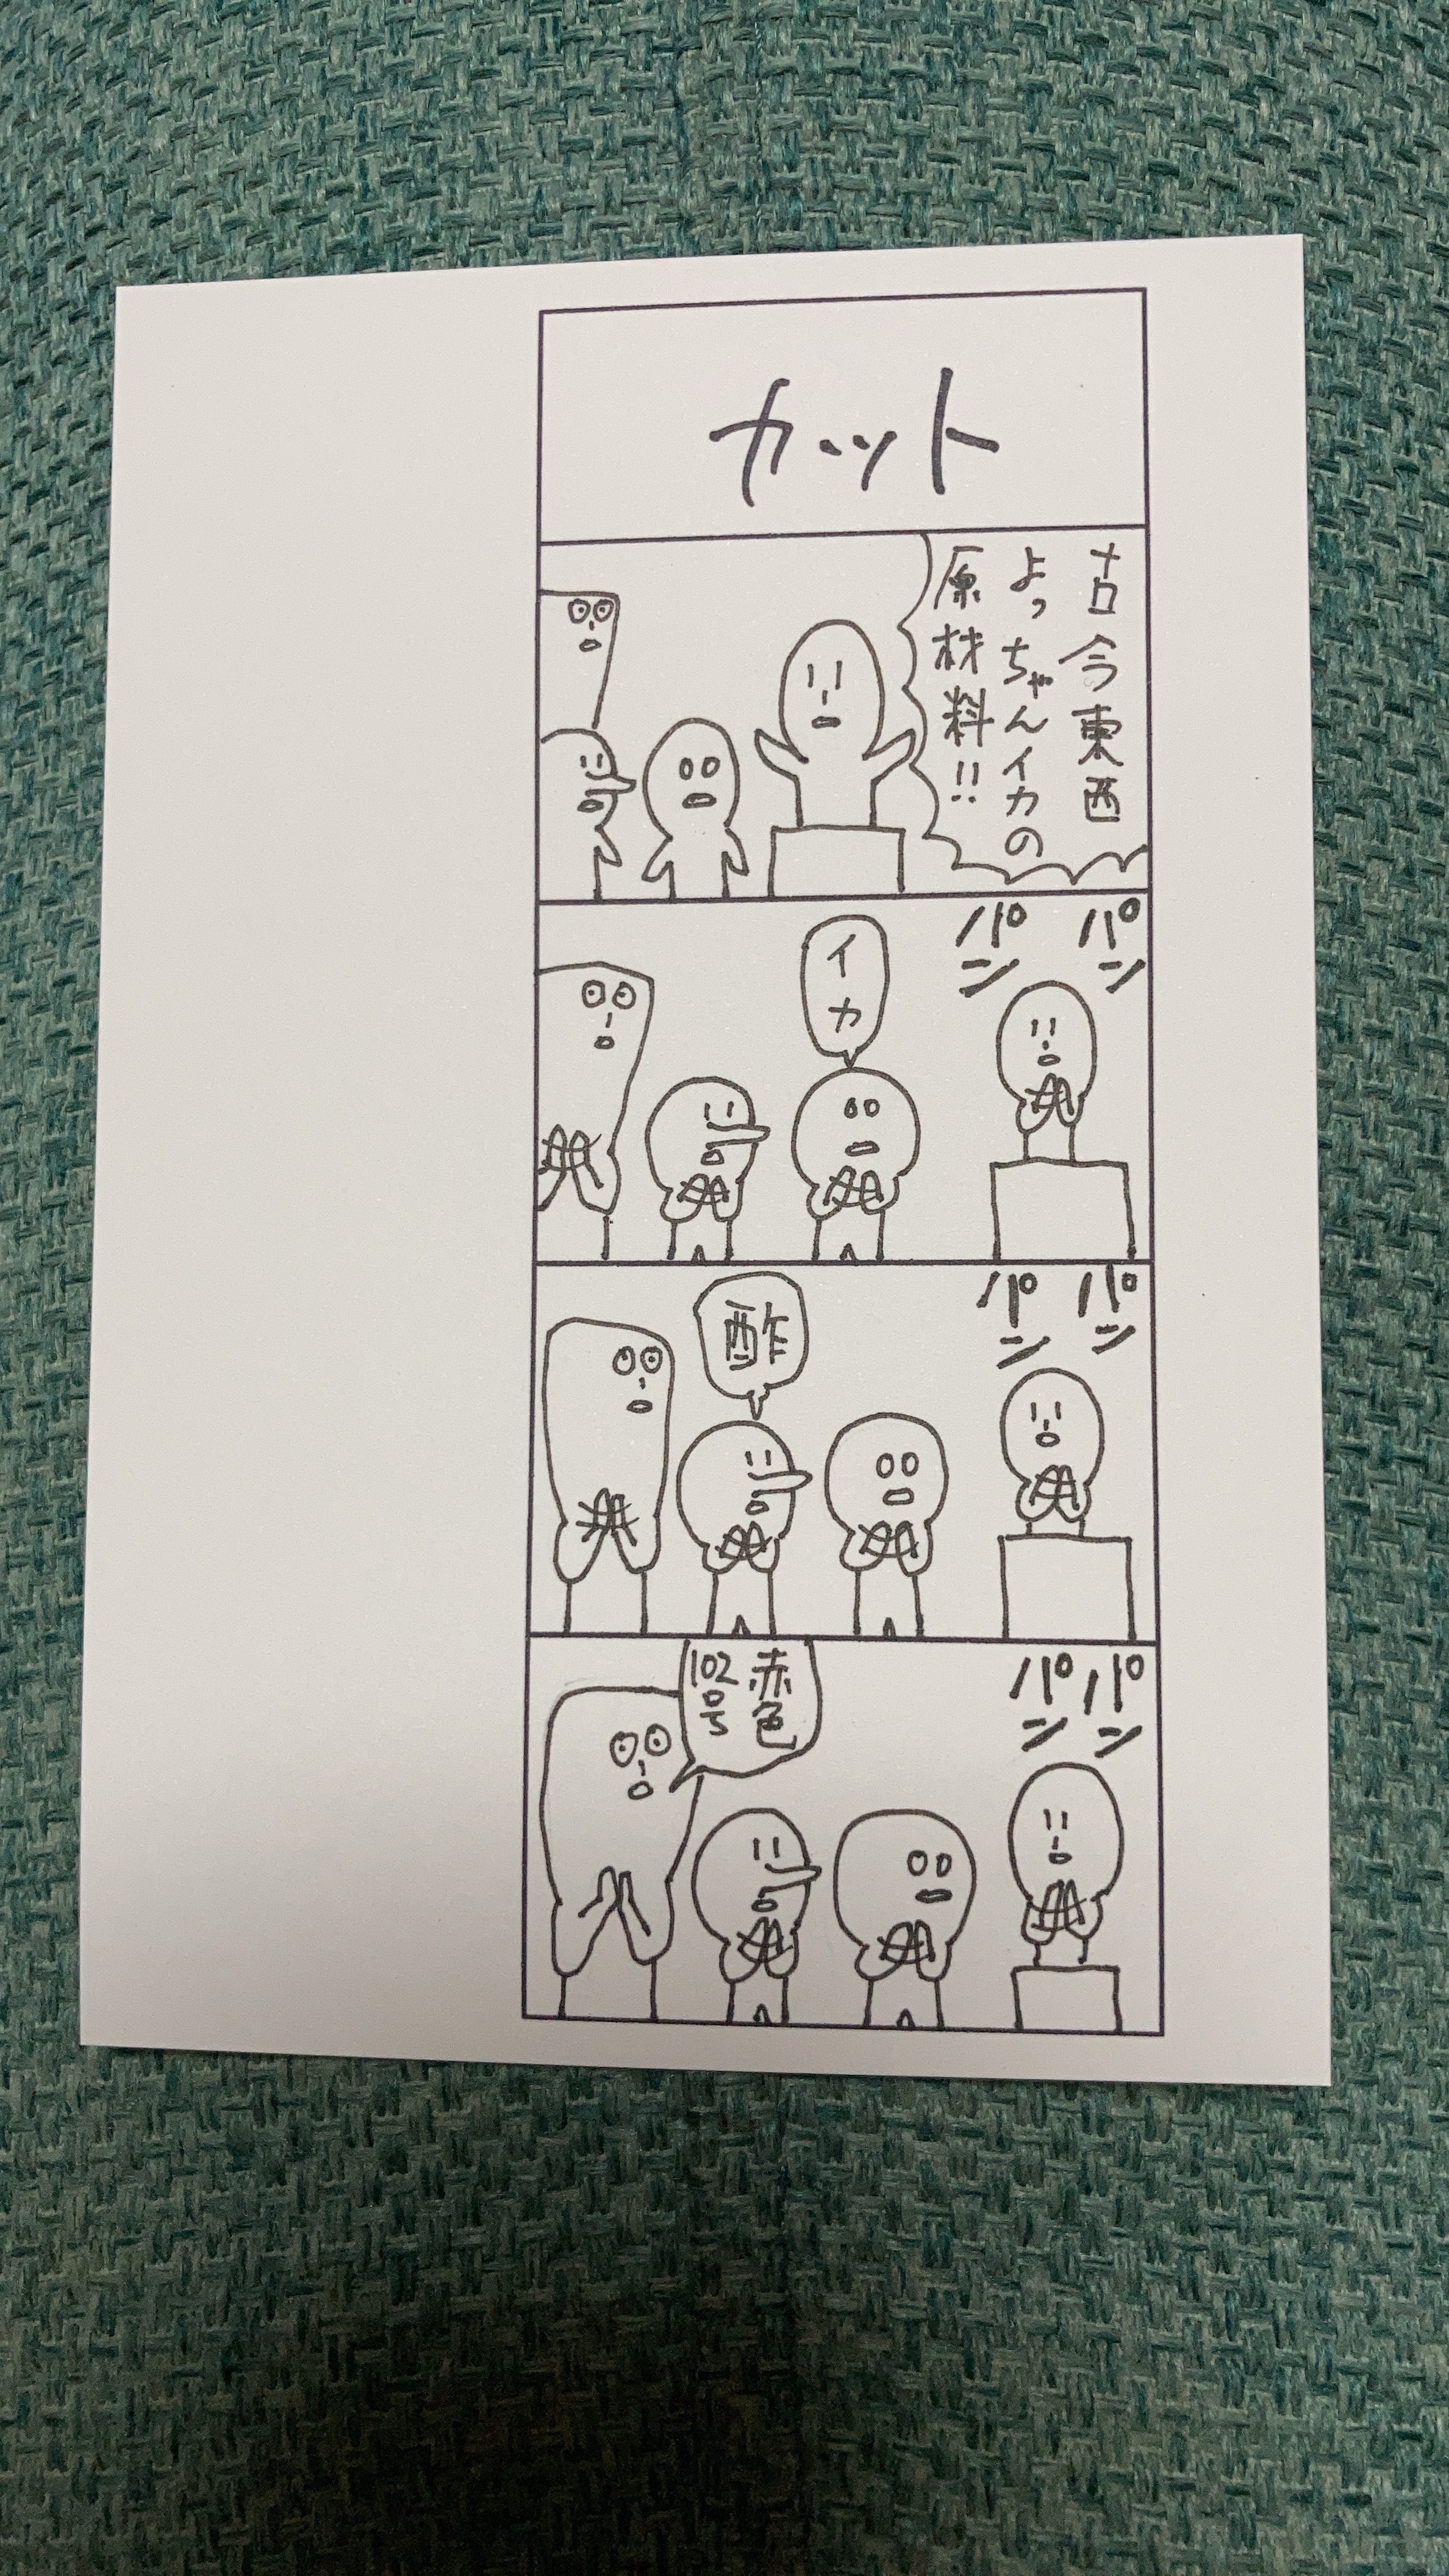 カット
古今東西
よっちゃんイカの
原材料!!
パン
パン
イカ
パン
パン
酢
パン
パン
赤色
102号